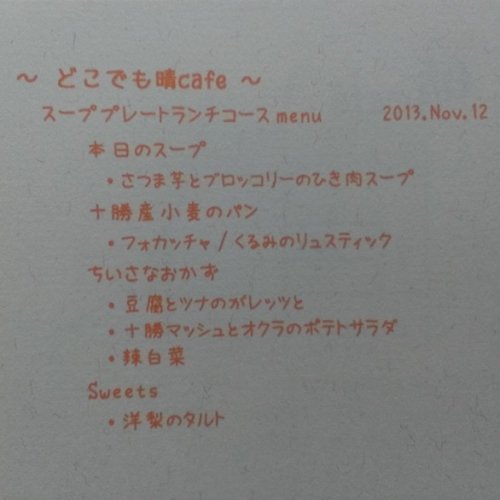 ～ どこでも晴cafe ～
スーププレートランチコース menu 2013.Nov.12
本日のスープ
・さつま芋とブロッコリーのひき肉スープ
十勝産小麦のパン
・フォカッチャ / くるみのリュスティック
ちいさなおかず
・豆腐とツナのガレッツと
・十勝マッシュとオクラのポテトサラダ
・辣白菜
Sweets
・洋梨のタルト